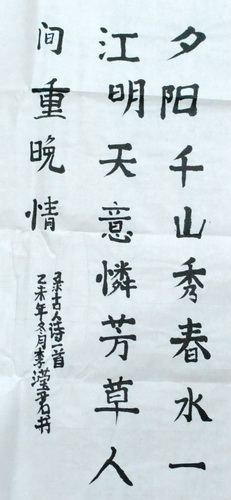 夕阳千山秀春水一
江明天意憐芳草人
间重晚情
录古人诗一首
乙未年冬月李滢君书